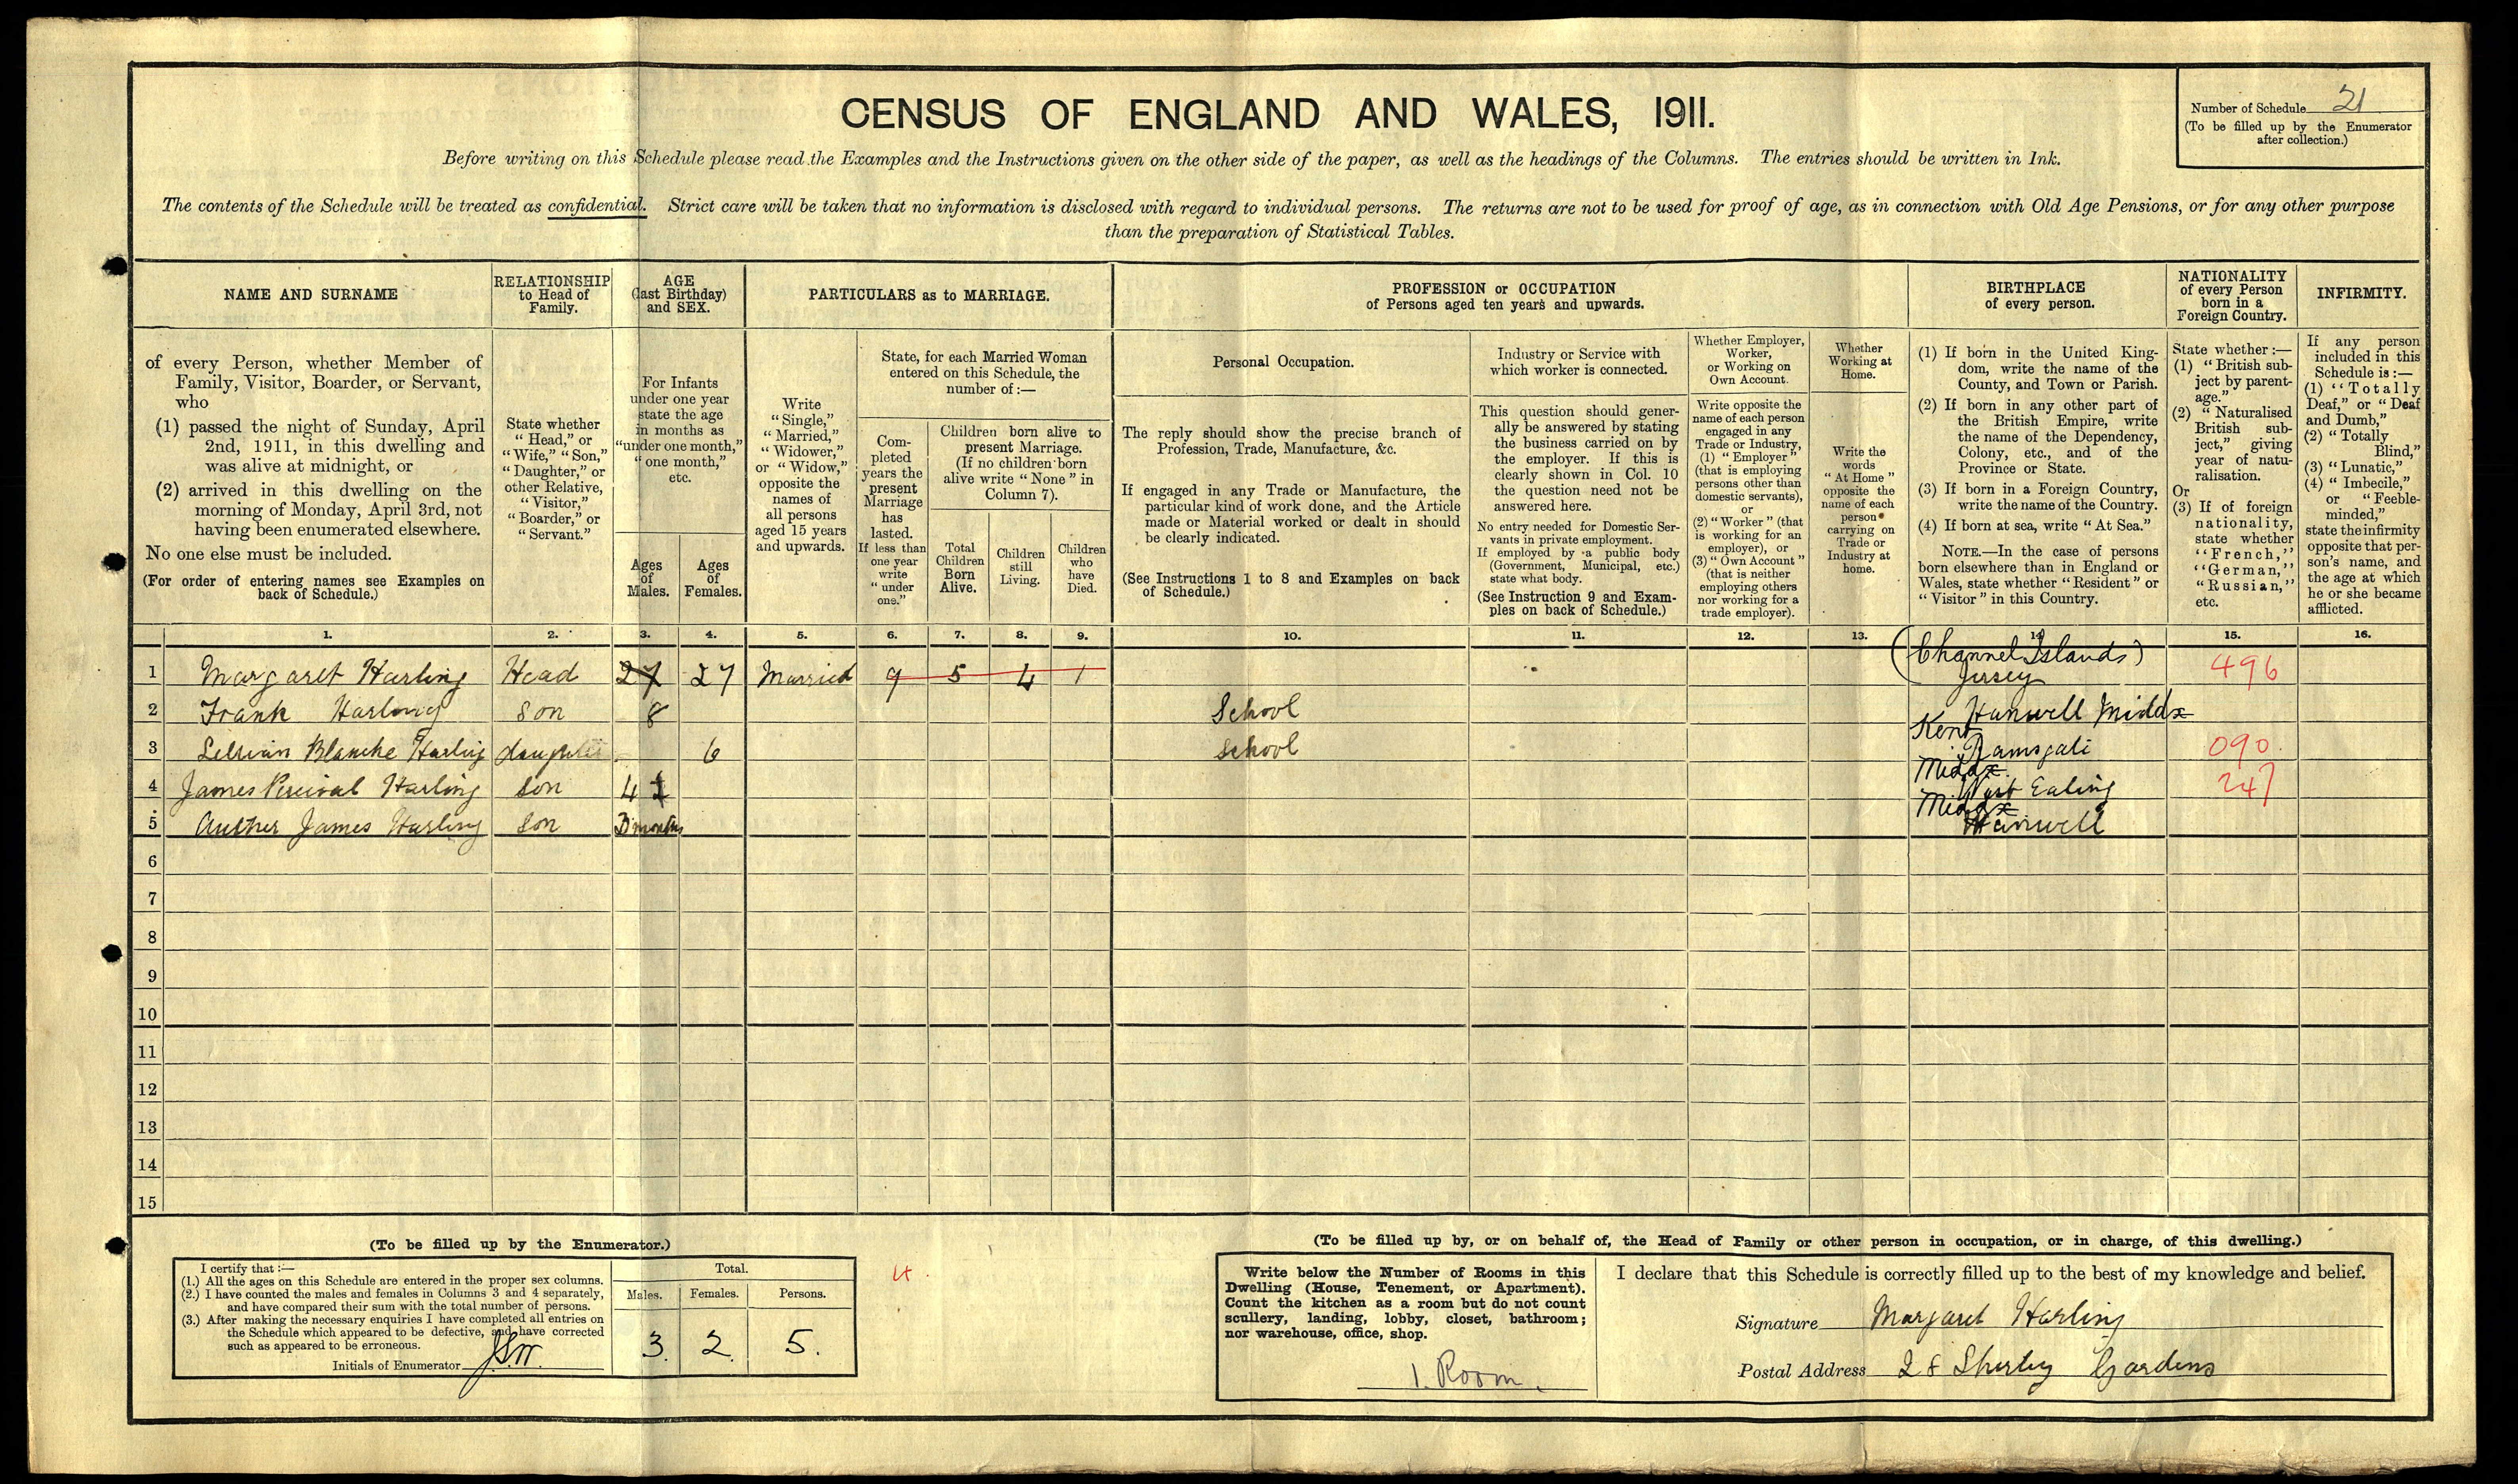 CENSUS OF ENGLAND AND WALES, 1911.
Number of Schedule 21
(To be filled up by the Enumerator
after collection.)
Before writing on this Schedule please read the Examples and the Instructions given on the other side of the paper, as well as the headings of the Columns. The entries should be written in Ink.
The contents of the Schedule will be treated as confidential. Strict care will be taken that no information is disclosed with regard to individual persons. The returns are not to be used for proof of age, as in connection with Old Age Pensions, or for any other purpose
than the preparation of Statistical Tables.
NAME AND SURNAME
of every Person, whether Member of
Family, Visitor, Boarder, or Servant,
who
(1) passed the night of Sunday, April
2nd, 1911, in this dwelling and
was alive at midnight, or
(2) arrived in this dwelling on the
morning of Monday, April 3rd, not
having been enumerated elsewhere.
No one else must be included.
(For order of entering names see Examples on
back of Schedule.)
RELATIONSHIP
to Head of
Family.
State whether
"Head," or
"Wife," "Son,"
"Daughter," or
other Relative,
"Visitor,"
"Boarder," or
"Servant."
AGE
(last Birthday)
and SEX.
For Infants
under one year
state the age
in months as
"under one month,"
"one month,"
etc.
Ages
of
Males.
Ages
of
Females.
PARTICULARS as to MARRIAGE.
Write
"Single,"
"Married,"
"Widower,"
or "Widow,"
opposite the
names of
all persons
aged 15 years
and upwards.
State, for each Married Woman
entered on this Schedule, the
number of:—
Com-
pleted
years the
present
Marriage
has
lasted.
If less than
one year
write
"under
one."
Children born alive to
present Marriage.
(If no children born
alive write "None" in
Column 7).
Total
Children
Born
Alive.
Children
still
Living.
Children
who
have
Died.
PROFESSION or OCCUPATION
of Persons aged ten years and upwards.
Personal Occupation.
The reply should show the precise branch of
Profession, Trade, Manufacture, &c.
If engaged in any Trade or Manufacture, the
particular kind of work done, and the Article
made or Material worked or dealt in should
be clearly indicated.
(See Instructions 1 to 8 and Examples on back
of Schedule.)
Industry or Service with
which worker is connected.
This question should gener-
ally be answered by stating
the business carried on by
the employer. If this is
clearly shown in Col. 10
the question need not be
answered here.
No entry needed for Domestic Ser-
vants in private employment.
If employed by a public body
(Government, Municipal, etc.)
state what body.
(See Instruction 9 and Exam-
ples on back of Schedule.)
Whether Employer,
Worker,
or Working on
Own Account.
Write opposite the
name of each person
engaged in any
Trade or Industry,
(1) "Employer"
(that is employing
persons other than
domestic servants),
or
(2) "Worker" (that
is working for an
employer), or
(3) "Own Account"
(that is neither
employing others
nor working for a
trade employer).
Whether
Working at
Home.
Write the
words
"At Home"
opposite the
name of each
person
carrying on
Trade or
Industry at
home.
BIRTHPLACE
of every person.
(1) If born in the United King-
dom, write the name of the
County, and Town or Parish.
(2) If born in any other part of
the British Empire, write
the name of the Dependency,
Colony, etc., and of the
Province or State.
(3) If born in a Foreign Country,
write the name of the Country.
(4) If born at sea, write "At Sea."
NOTE.—In the case of persons
born elsewhere than in England or
Wales, state whether "Resident" or
"Visitor" in this Country.
NATIONALITY
of every Person
born in a
Foreign Country.
State whether:—
(1) "British sub-
ject by parent-
age."
(2) "Naturalised
British sub-
ject," giving
year of natu-
ralisation.
Or
(3) If of foreign
nationality,
state whether
"French,"
"German,"
"Russian,"
etc.
INFIRMITY.
If any person
included in this
Schedule is:—
(1) "Totally
Deaf," or "Deaf
and Dumb,"
(2) "Totally
Blind,"
(3) "Lunatic,"
(4) "Imbecile,"
or "Feeble-
minded,"
state the infirmity
opposite that per-
son's name, and
the age at which
he or she became
afflicted.
1. 2. 3. 4. 5. 6. 7. 8. 9. 10. 11. 12. 13. 14. 15. 16.
(Channel Islands)
1 Margaret Harling Head 27 27 Married 9 5 4 1 Jersey 496
2 Frank Harling Son 8 School Hanwell Middx
Kent
3 Lillian Blanche Harling daughter 6 School Ramsgate 090.
Middx.
4 James Percival Harling Son 4 West Ealing 247
Middx
5 Auther James Harling Son 3 months Hanwell
6
7
8
9
10
11
12
13
14
15
(To be filled up by the Enumerator.)
I certify that:—
(1.) All the ages on this Schedule are entered in the proper sex columns.
(2.) I have counted the males and females in Columns 3 and 4 separately,
and have compared their sum with the total number of persons.
(3.) After making the necessary enquiries I have completed all entries on
the Schedule which appeared to be defective, and have corrected
such as appeared to be erroneous.
Initials of Enumerator
Total.
Males. Females. Persons.
3. 2. 5.
4
(To be filled up by, or on behalf of, the Head of Family or other person in occupation, or in charge, of this dwelling.)
Write below the Number of Rooms in this
Dwelling (House, Tenement, or Apartment).
Count the kitchen as a room but do not count
scullery, landing, lobby, closet, bathroom;
nor warehouse, office, shop.
1. Room.
I declare that this Schedule is correctly filled up to the best of my knowledge and belief.
Signature Margaret Harling
Postal Address 28 Shirley Gardens